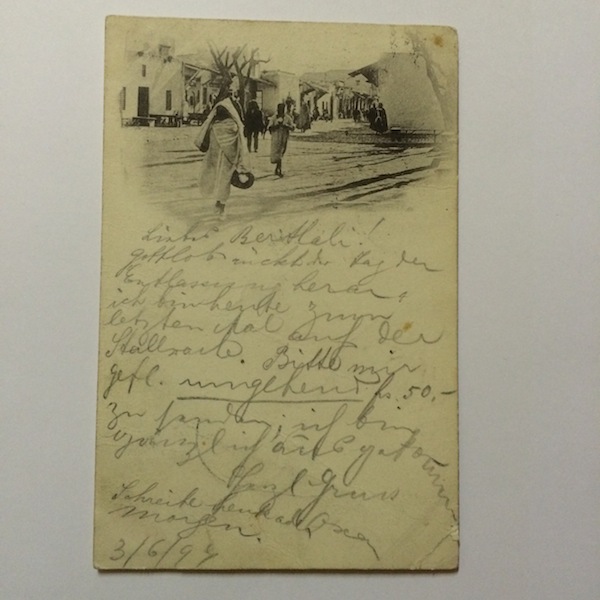 Liebes Berthali!
Gottlob rückt der Tag der
Entlassung heran,
ich bin heute zum
letzten Mal auf der
Stallwache. Bitte mir
gefl. umgehend fs. 50,-
zu senden, ich bin
gänzlich aus
Herzl. Gruss
Schreibe Oscar
morgen.
3/6/97